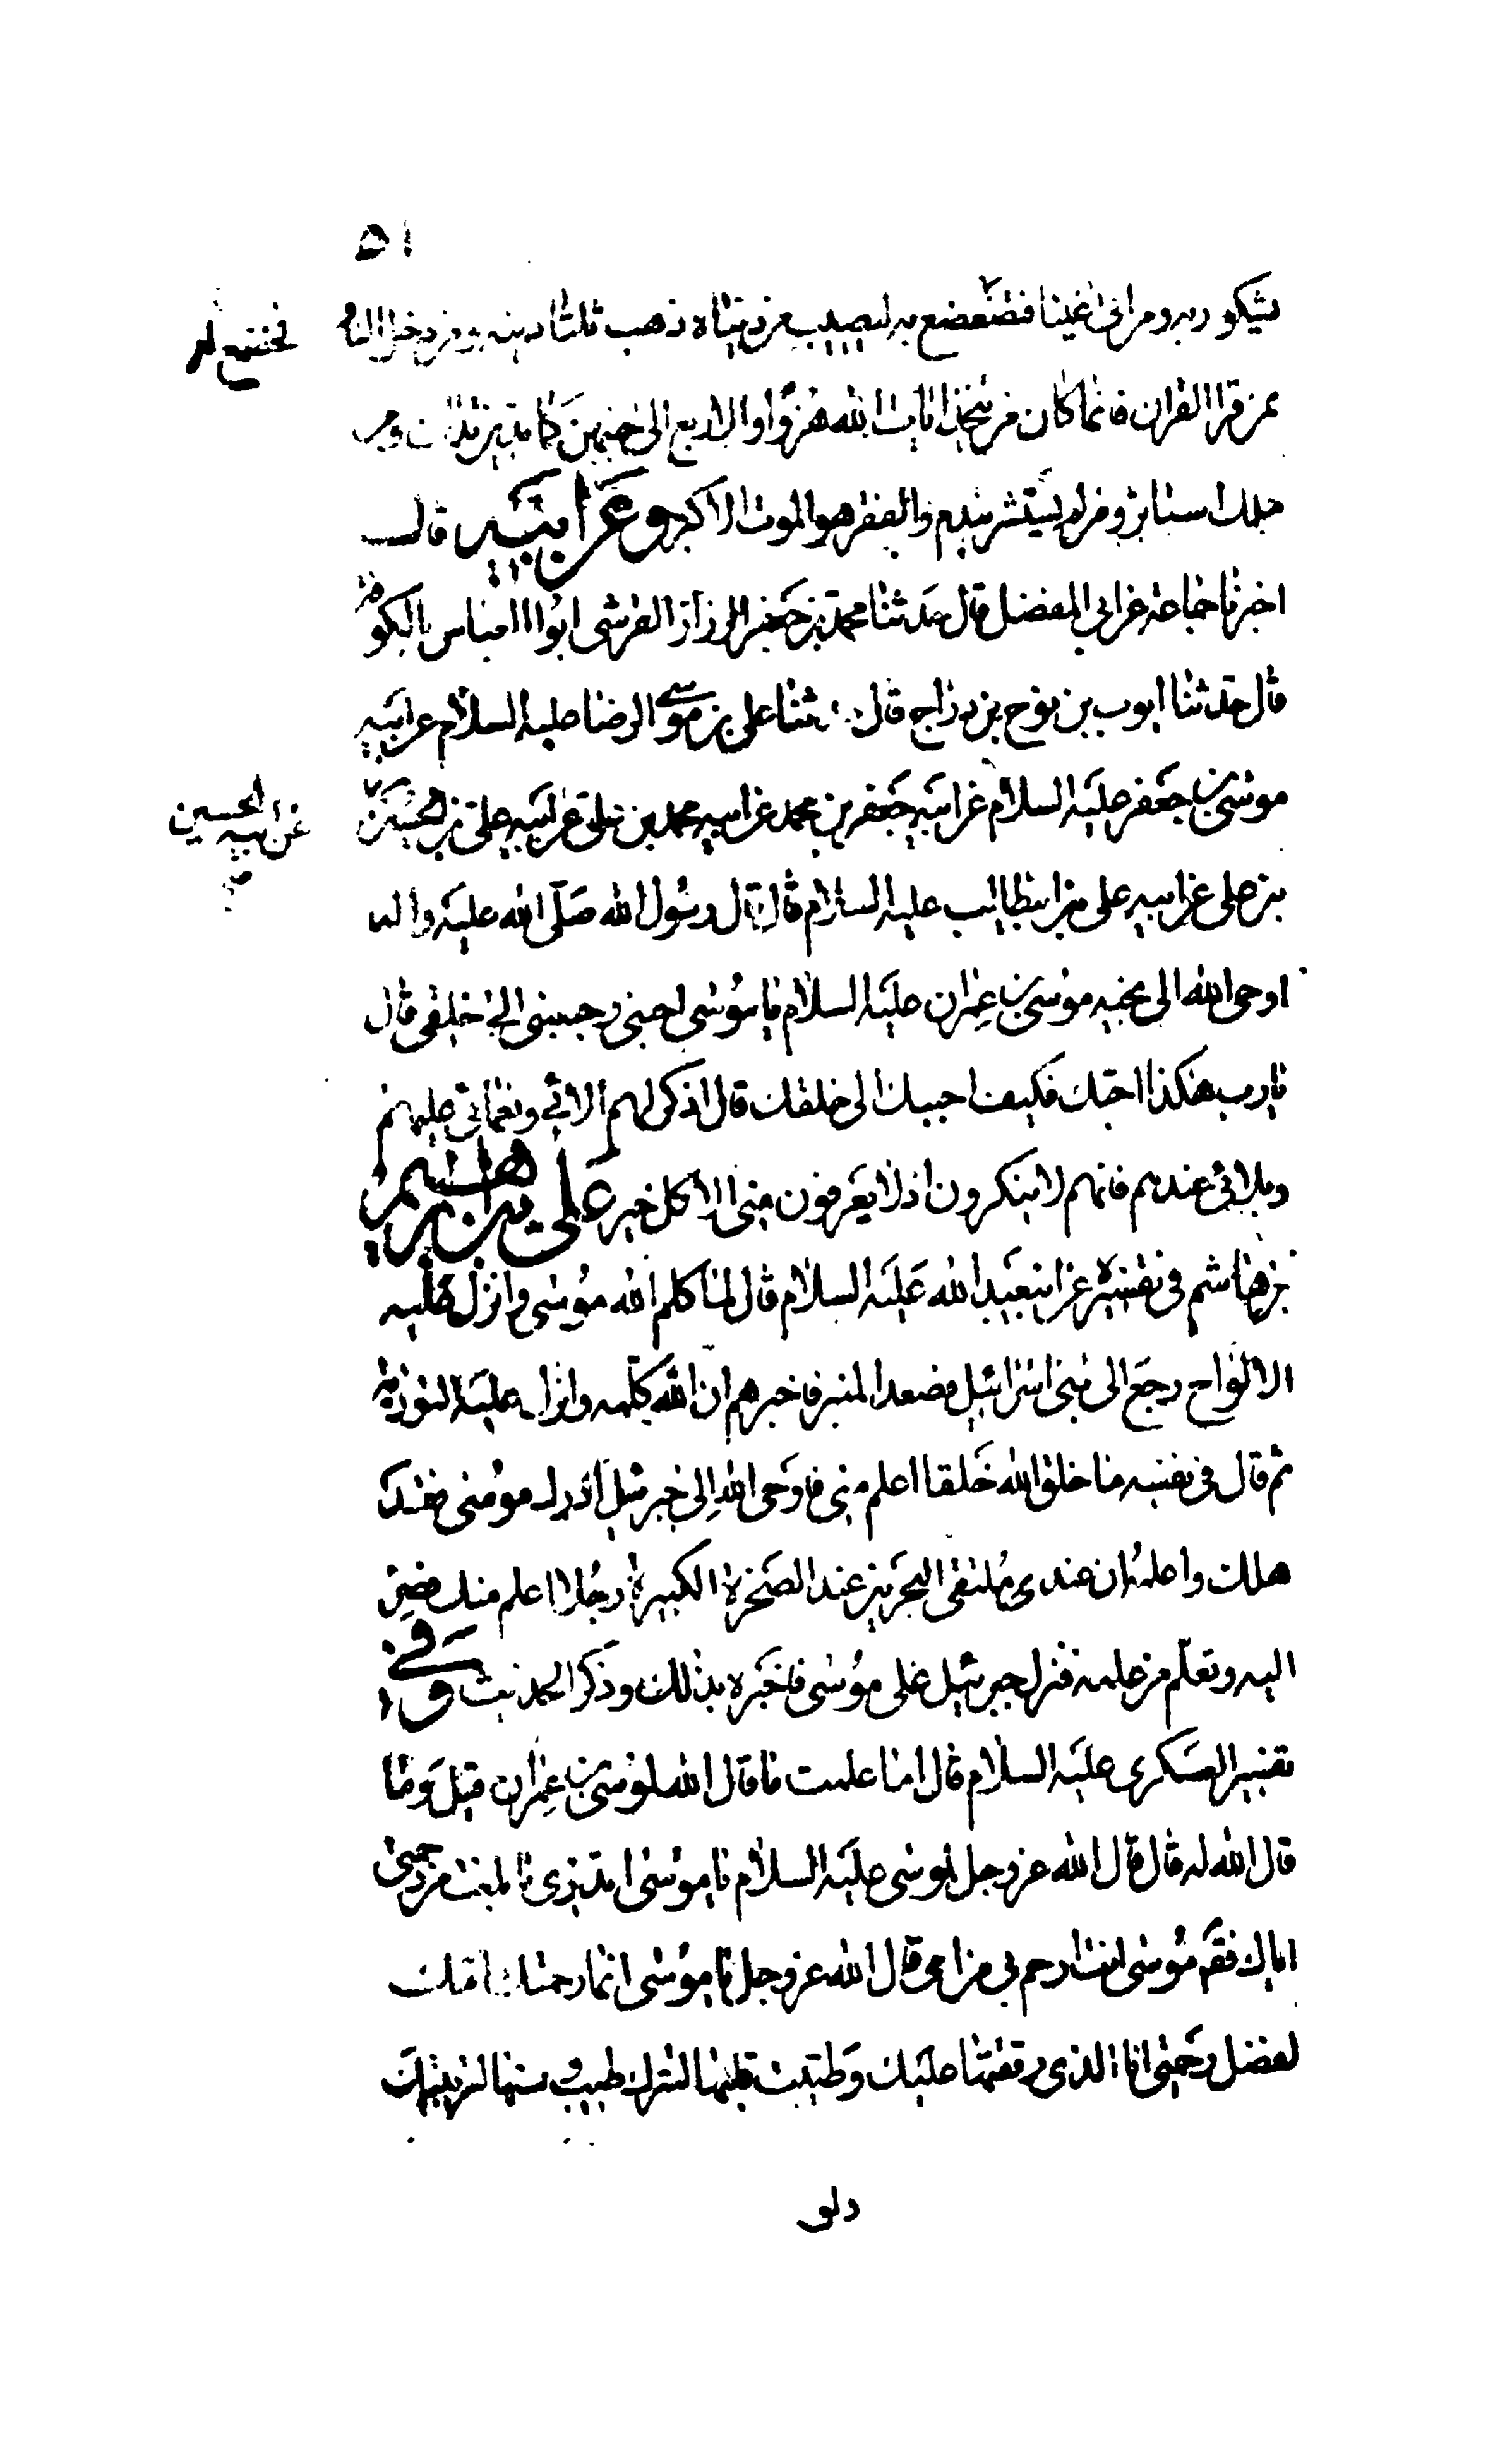 ٥١
يشكو ربه ومن اتى غنيا فتضعضع له ليصيب من دنياه ذهب ثلثا دينه ومن دخل النار
فخشع له
ممن قرا القران فانما كان ممن يتخذ ايات الله هزوا والاربع الى جنبهن كما تدين تدان ومن
ملك استاثر ومن لم يستشر يندم والفقر هو الموت الاكبر وعن ابيه قال
اخبرنا جماعة عن ابي المفضل قال حدثنا محمد بن جعفر الرزاز القرشي ابو العباس بالكوفة
قال حدثنا ايوب بن نوح بن دراج قال حدثنا علي بن موسى الرضا عليه السلام عن ابيه
موسى بن جعفر عليه السلام عن ابيه جعفر بن محمد عن ابيه محمد بن علي عن ابيه علي بن الحسين
عن ابيه الحسين
بن علي عن ابيه علي بن ابيطالب عليه السلام قال قال رسول الله صلى الله عليه واله
اوحى الله الى نجيه موسى بن عمران عليه السلام يا موسى احبني وحببني الى خلقي قال
يا رب هكذا احبك فكيف احببك الى خلقك قال اذكر لهم الائي ونعمائي عليهم
وبلائي عندهم فانهم لا ينكرون اذ لا يعرفون مني الا كل خير علي بن ابرهيم
بن هاشم في تفسيره عن ابيعبد الله عليه السلام قال لما كلم الله موسى وانزل عليه
الالواح رجع الى بني اسرائيل فصعد المنبر فاخبرهم ان الله كلمه وانزل عليه التورية
ثم قال في نفسه ما خلق الله خلقا اعلم مني فاوحى الله الى جبرئيل ادرك موسى فقد
هلك واعلمه ان عند ملتقى البحرين عند الصخرة الكبيرة رجلا اعلم منك فصر
اليه وتعلم من علمه فنزل جبرئيل على موسى فاخبره بذلك وذكر الحديث وفي
تفسير العسكري عليه السلام قال اما علمت ما قال الله لموسى بن عمران قيل وما
قال الله له قال قال الله عز وجل لموسى عليه السلام يا موسى اتدري ما بلغت من رحمتي
اياك فقال موسى انت ارحم بي من امي قال الله عز وجل يا موسى انما رحمتك امك
لفضل رحمتي انا الذي رققتها عليك وطيبت قلبها لتترك طيب وسنها لتربيتك
ولو